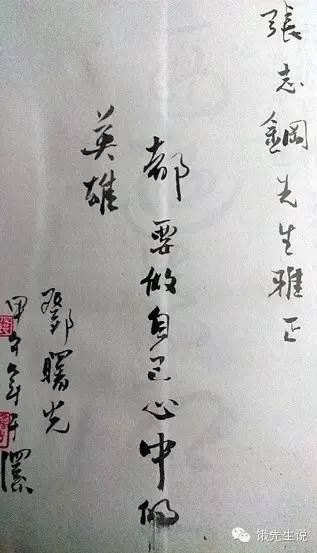 張志鋼先生雅正
都要做自己心中的
英雄
鄧曙光
甲午年于漯
饿先生说